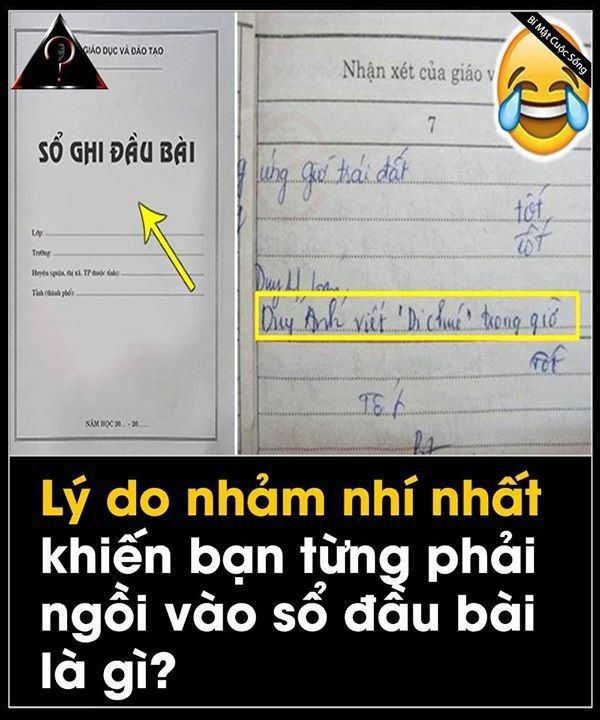 GIÁO DỤC VÀ ĐÀO TẠO
SỔ GHI ĐẦU BÀI
Lớp:
Trường:
Huyện (quận, thị xã, TP thuộc tỉnh):
Tỉnh (thành phố):
NĂM HỌC 20... - 20.....
Bí Mật Cuộc Sống
Nhận xét của giáo v
7
ứng giờ trái đất
tốt
tốt
Duy Anh viết "Di chúc" trong giờ
Tốt
Tốt
Lý do nhảm nhí nhất
khiến bạn từng phải
ngồi vào sổ đầu bài
là gì?